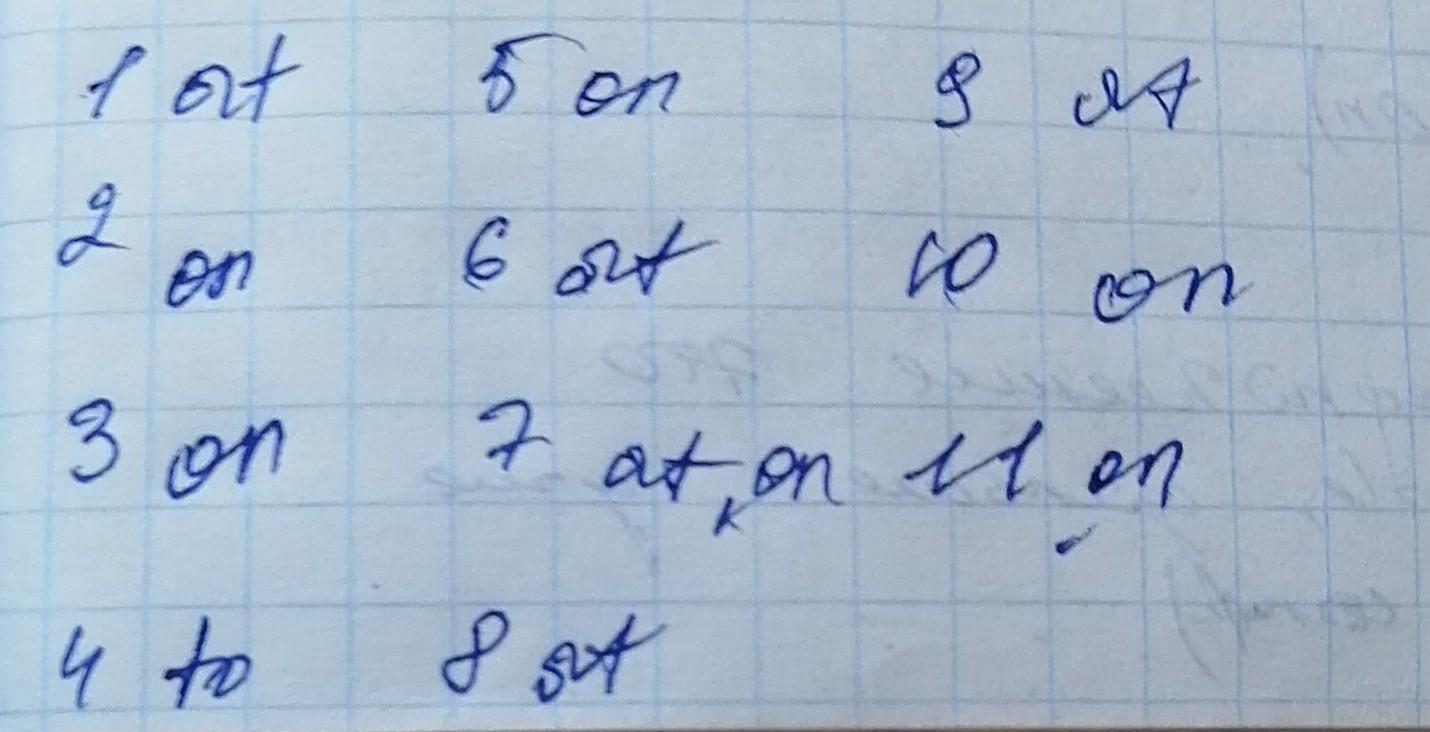 1 at 5 on 9 at
2 on 6 at 10 on
3 on 7 at, on 11 on
4 to 8 at